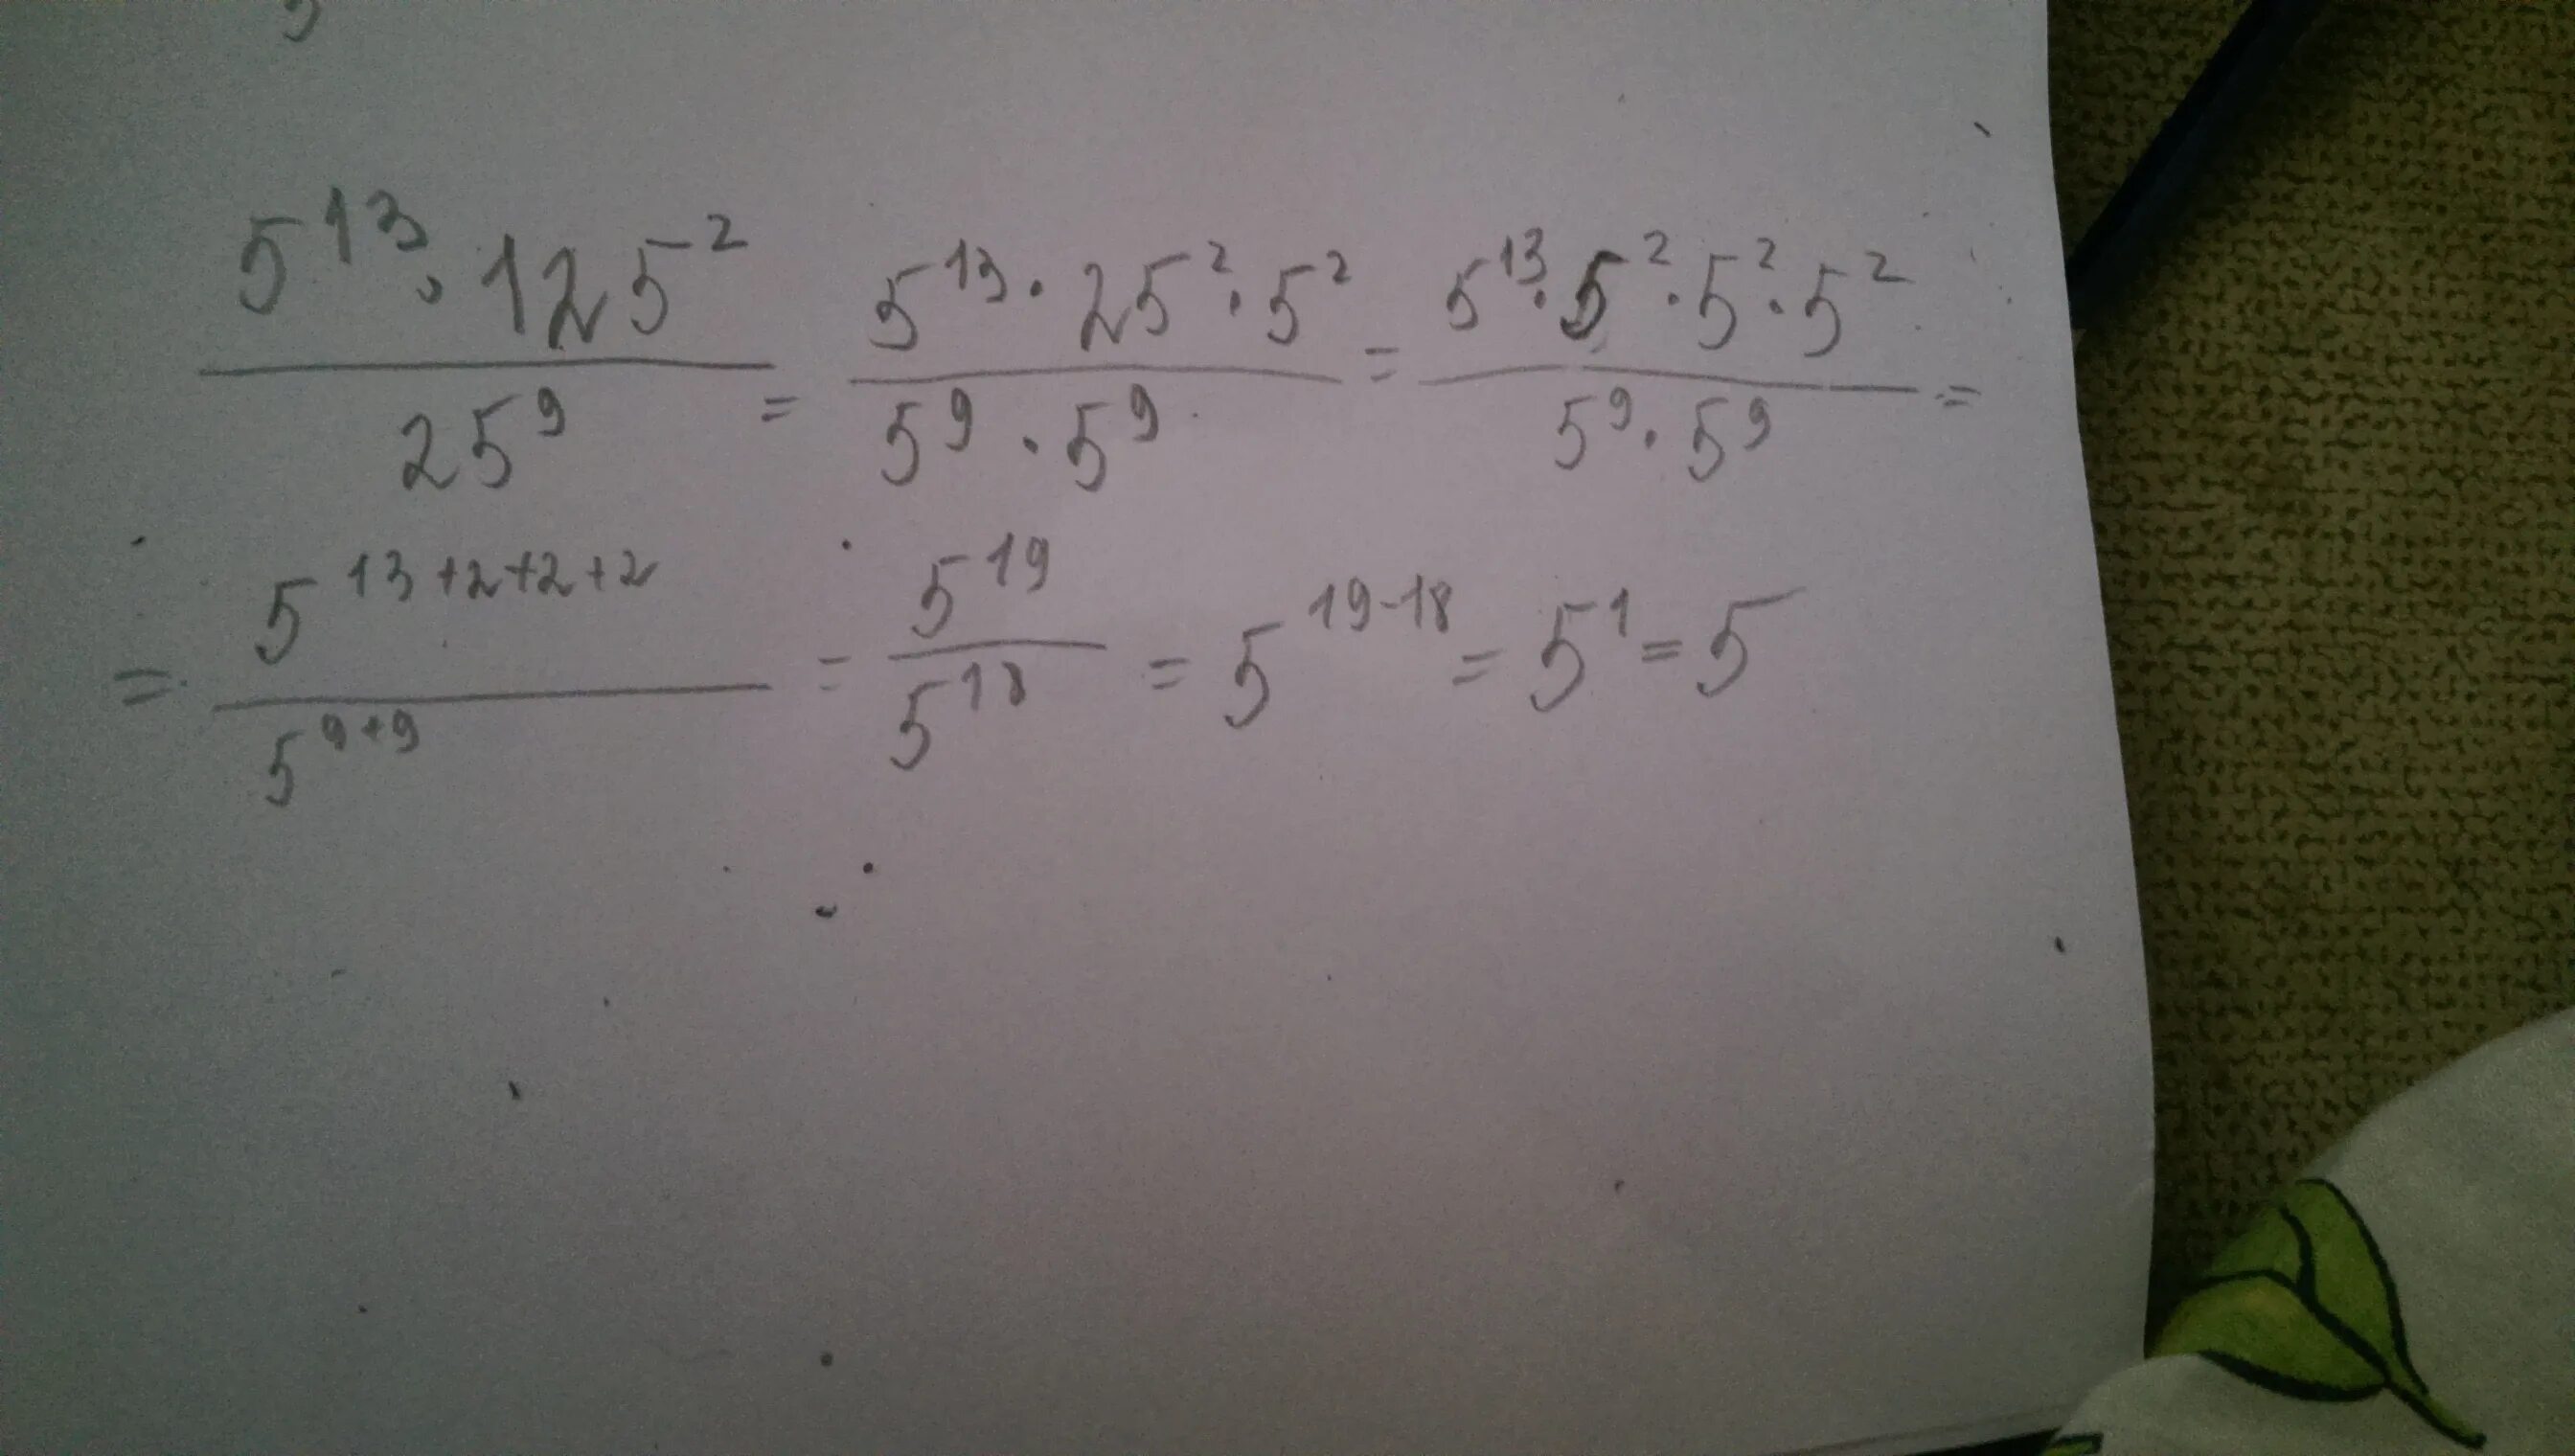 5^13 · 125^2 / 25^9 = 5^13 · 25^2 · 5^2 / 5^9 · 5^9 = 5^13 · 5^2 · 5^2 · 5^2 / 5^9 · 5^9 =
= 5^13+2+2+2 / 5^9+9 = 5^19 / 5^18 = 5^19-18 = 5^1 = 5